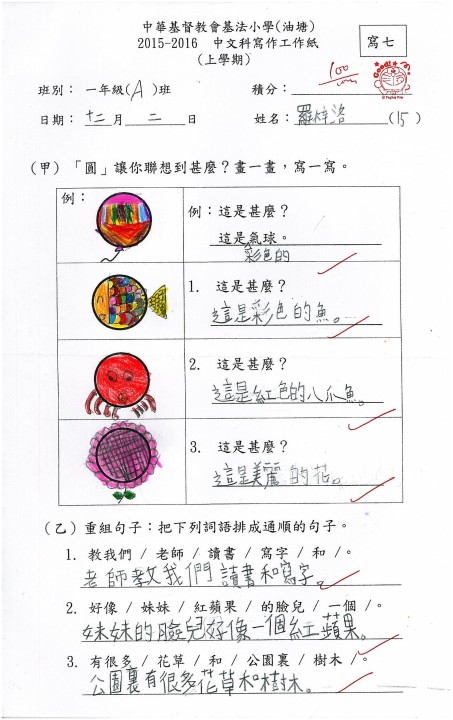 中華基督教會基法小學(油塘)
2015-2016 中文科寫作工作紙
(上學期)
寫七
班別： 一年級(A)班
積分：100
Good!
日期： 十二月二日
姓名：羅梓洛(15)
(甲) 「圓」讓你聯想到甚麼？畫一畫，寫一寫。
例：
例：這是甚麼？
這是氣球。
彩色的
1. 這是甚麼？
這是彩色的魚。
2. 這是甚麼？
這是紅色的八爪魚。
3. 這是甚麼？
這是美麗的花。
(乙) 重組句子：把下列詞語排成通順的句子。
1. 教我們 / 老師 / 讀書 / 寫字 / 和 /。
老師教我們讀書和寫字。
2. 好像 / 妹妹 / 紅蘋果 / 的臉兒 / 一個 /。
妹妹的臉兒好像一個紅蘋果。
3. 有很多 / 花草 / 和 / 公園裏 / 樹木 /。
公園裏有很多花草和樹木。